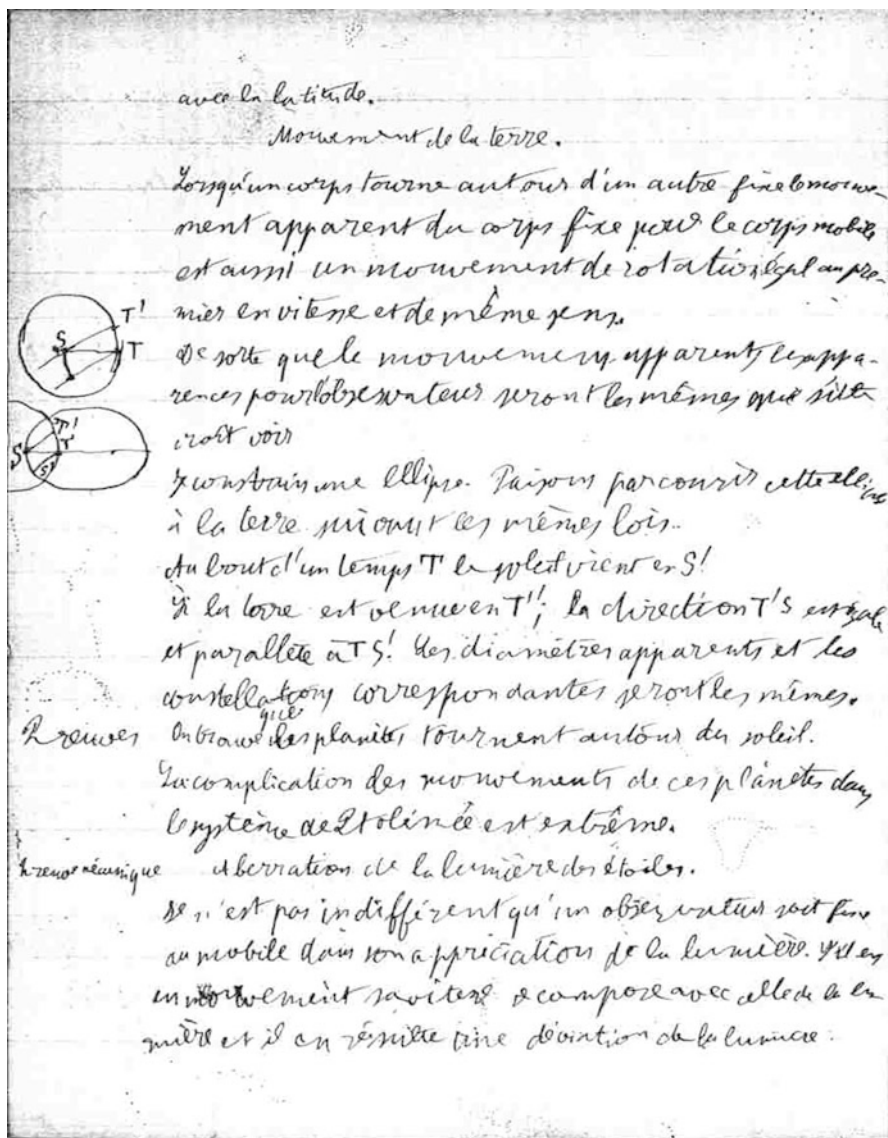 avec la latitude.
Mouvement de la terre.
Lorsqu'un corps tourne autour d'un autre fixe le mouve-
ment apparent du corps fixe pour le corps mobile
est aussi un mouvement de rotation égal au pre-
mier en vitesse et de même sens.
T'
S
T
De sorte que le mouvement apparent, les appa-
rences pour l'observateur seront les mêmes que s'il
croit voir
T'
S
T
S'
construis une Ellipse. Faisons parcourir cette ellipse
à la terre suivant les mêmes lois.
Au bout d'un temps T le soleil vient en S'
Si la terre est venue en T', la direction T'S est égale
et parallèle à TS'. Les diamètres apparents et les
constellations correspondantes seront les mêmes.
Preuves On trouve que les planètes tournent autour du soleil.
La complication des mouvements de ces planètes dans
le système de Ptolémée est extrême.
Preuve mécanique Aberration de la lumière des étoiles.
Il n'est pas indifférent qu'un observateur soit fixe
ou mobile dans son appréciation de la lumière. S'il est
en mouvement sa vitesse se compose avec celle de la lu
mière et il en résulte une déviation de la lumière.